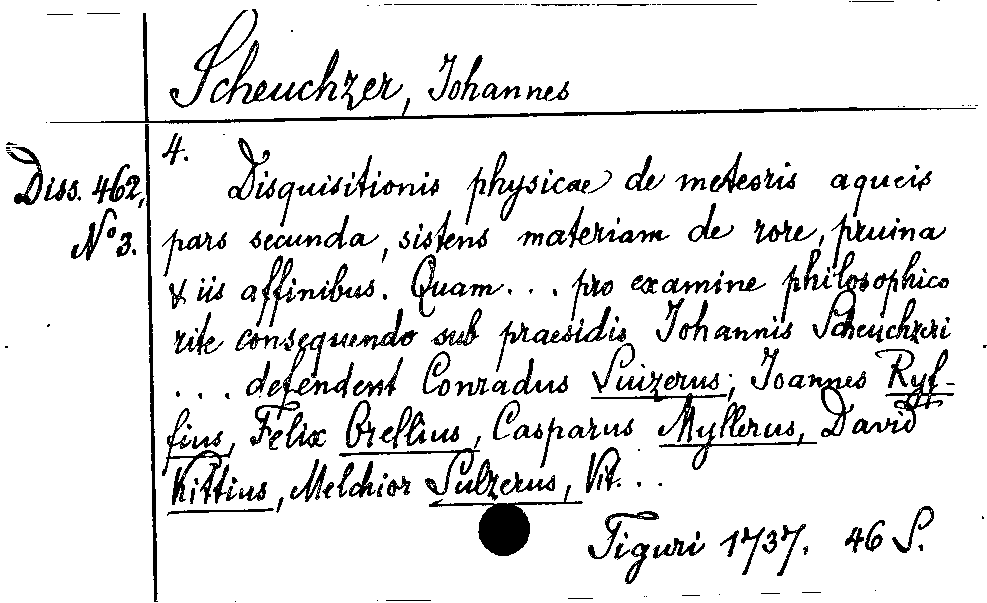 Scheuchzer, Johannes
Diss. 462,
No 3.
4.
Disquisitionis physicae de meteoris aqueis
pars secunda, sistens materiam de rore, pruina
& iis affinibus. Quam . . . pro examine philosophico
rite consequendo sub praesidio Johannis Scheuchzeri
. . . . defendent Conradus Suizerus, Joannes Ryf-
fius, Felix Orellius, Casparus Myllerus, David
Kittius, Melchior Sulzerus, Vit. . .
Tiguri 1737. 46 S.